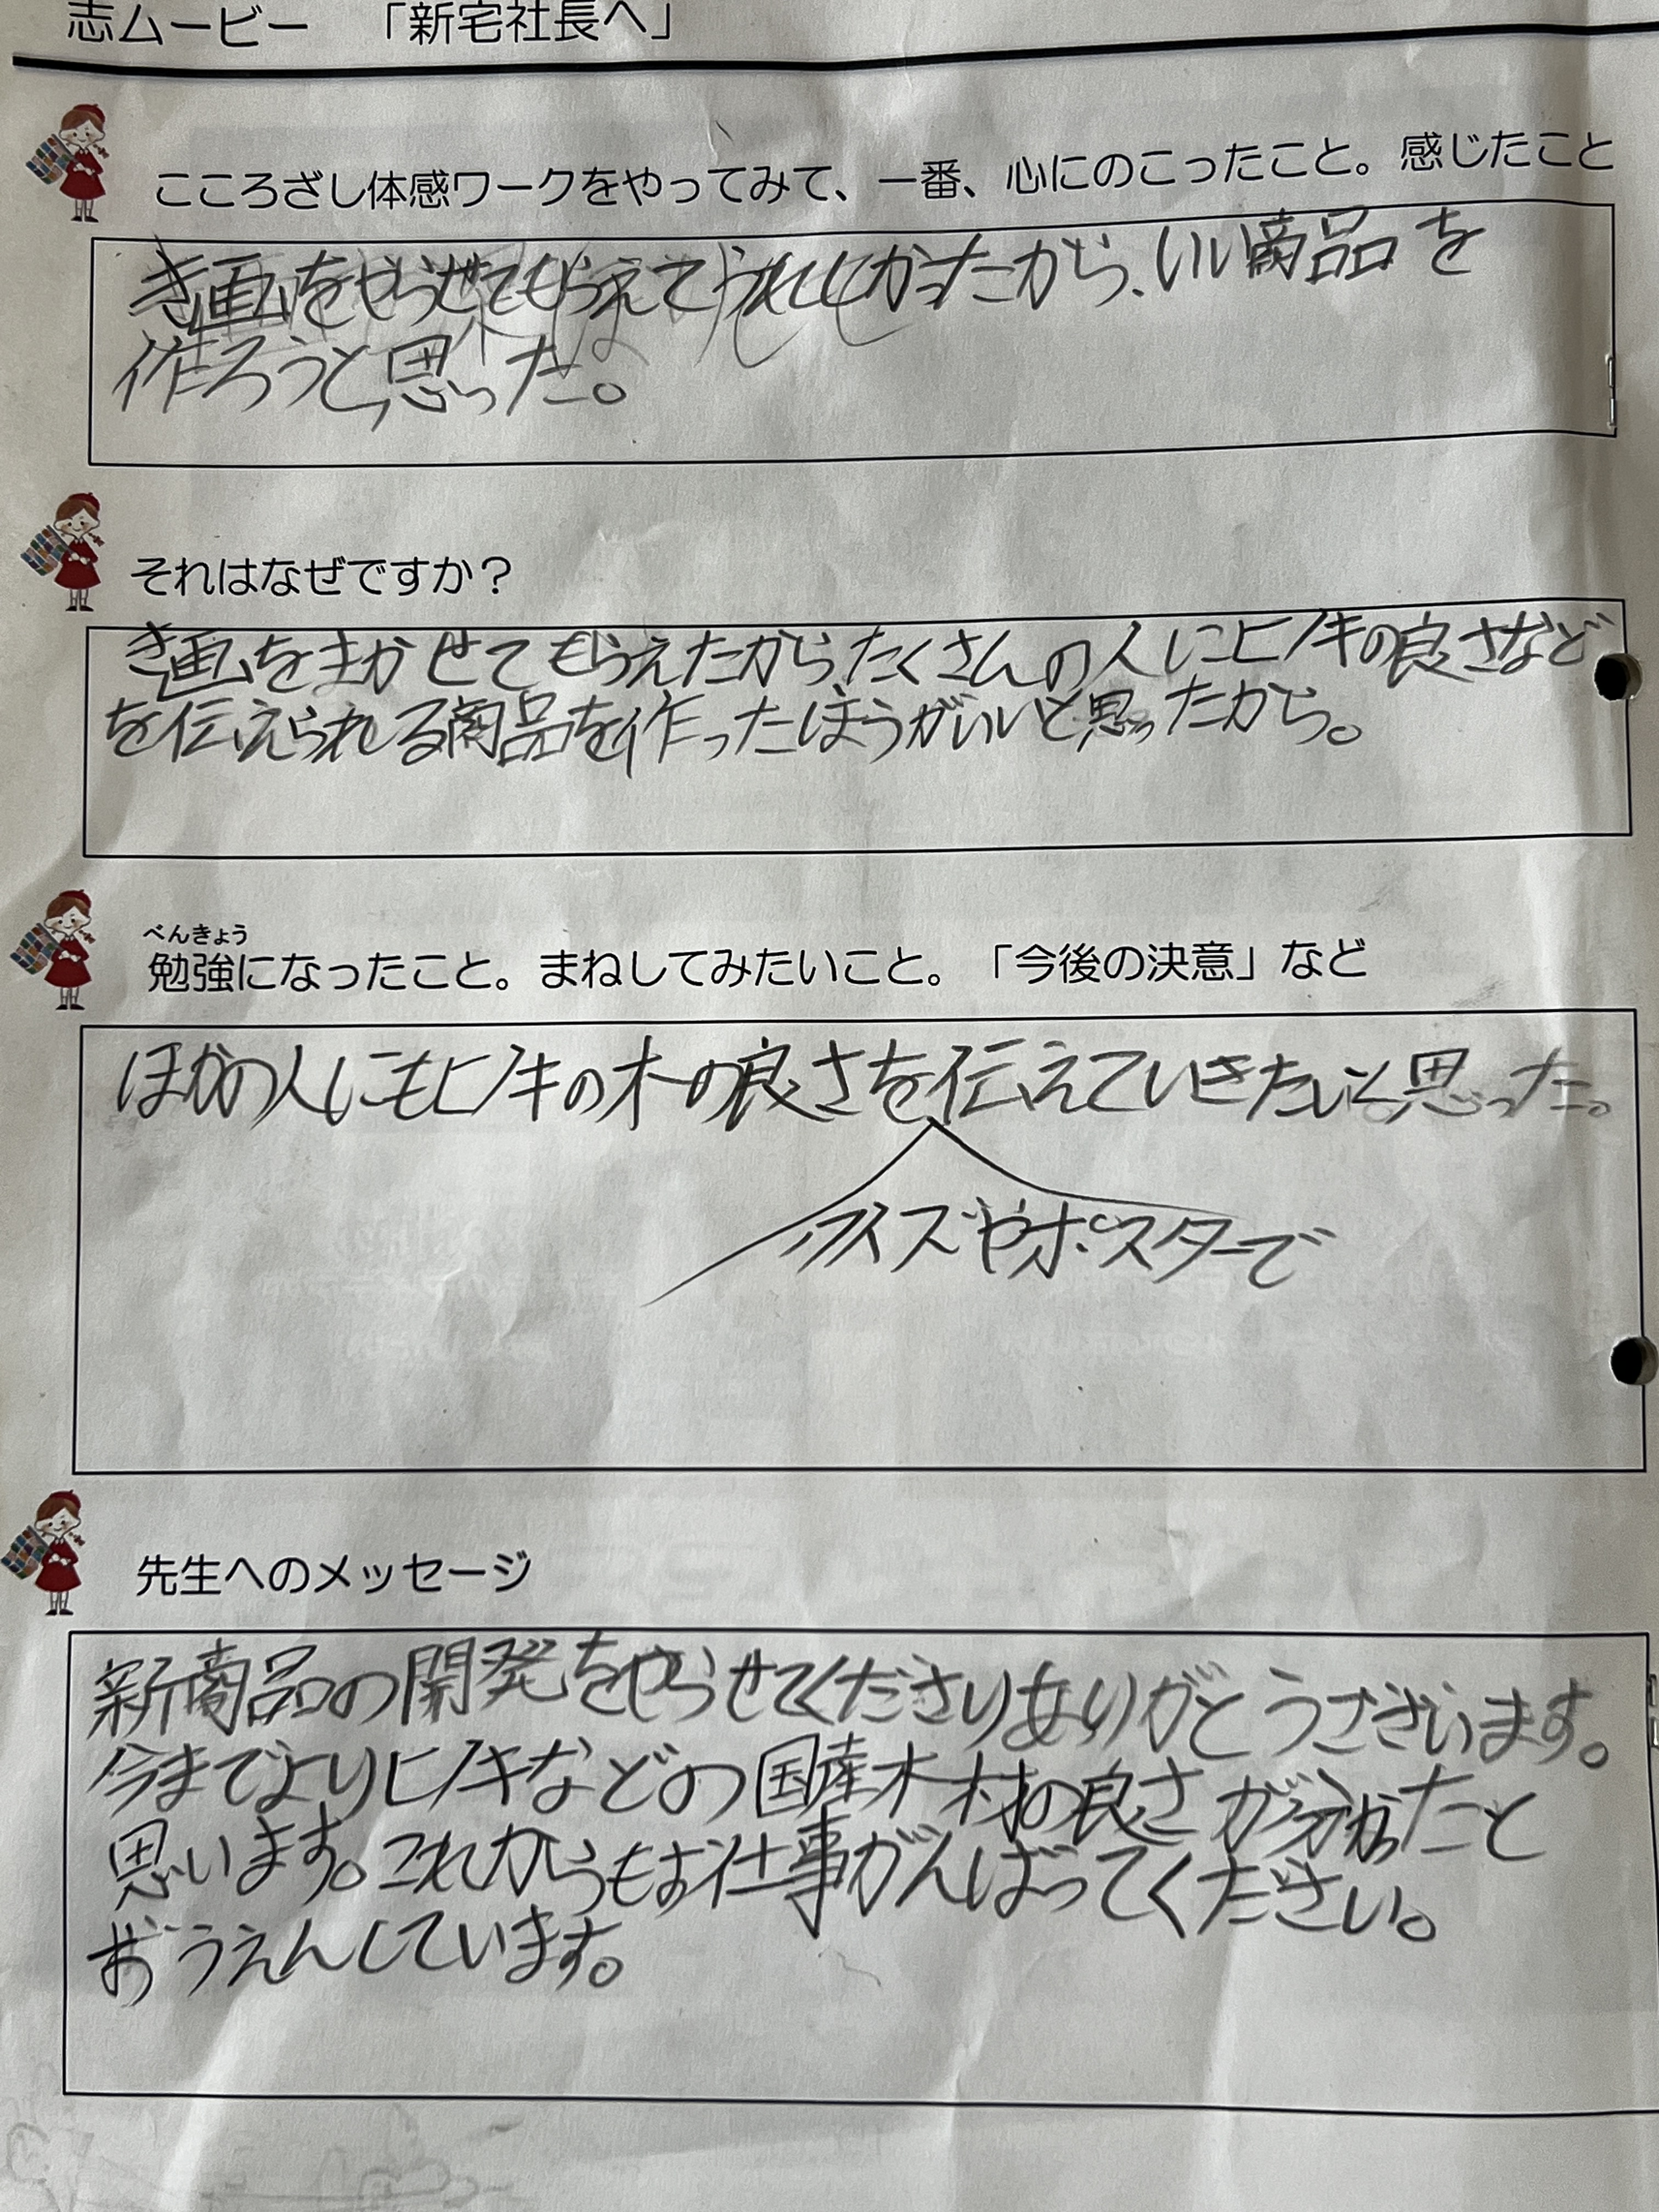 志ムービー 「新宅社長へ」
こころざし体感ワークをやってみて、一番、心にのこったこと。感じたこと
き画をやらせてもらえてうれしかったから、いい商品を
作ろうと思った。
それはなぜですか？
き画をまかせてもらえたから、たくさんの人にヒノキの良さなど
を伝えられる商品を作ったほうがいいと思ったから。
べんきょう
勉強になったこと。まねしてみたいこと。「今後の決意」など
ほかの人にもヒノキの木の良さを伝えていきたいと思った。
クイズやポスターで
先生へのメッセージ
新商品の開発をやらせてくださりありがとうございます。
今までよりヒノキなどの国産木材の良さが分かったと
思います。これからもお仕事がんばってください。
おうえんしています。